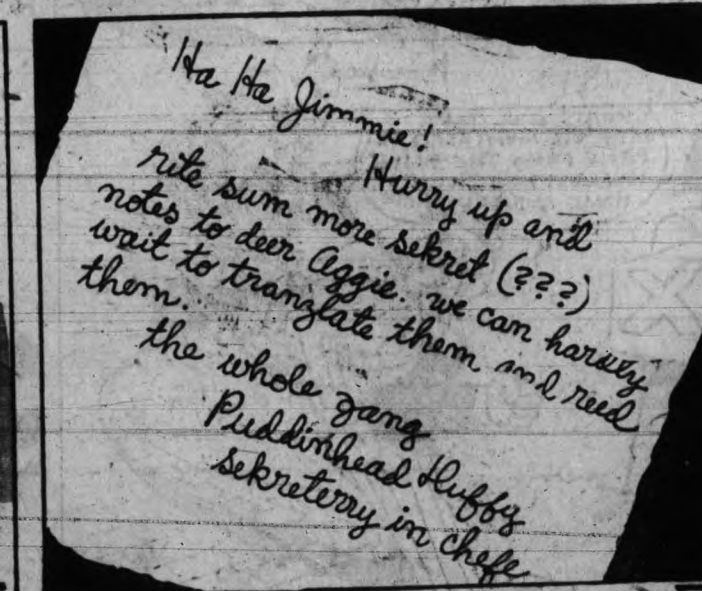 Ha Ha Jimmie!
Hurry up and
rite sum more sekret (???)
notes to deer Aggie. we can hardly
wait to tranzlate them and reed
them.
the whole gang
Puddinhead Huffy
sekreterry in chefe